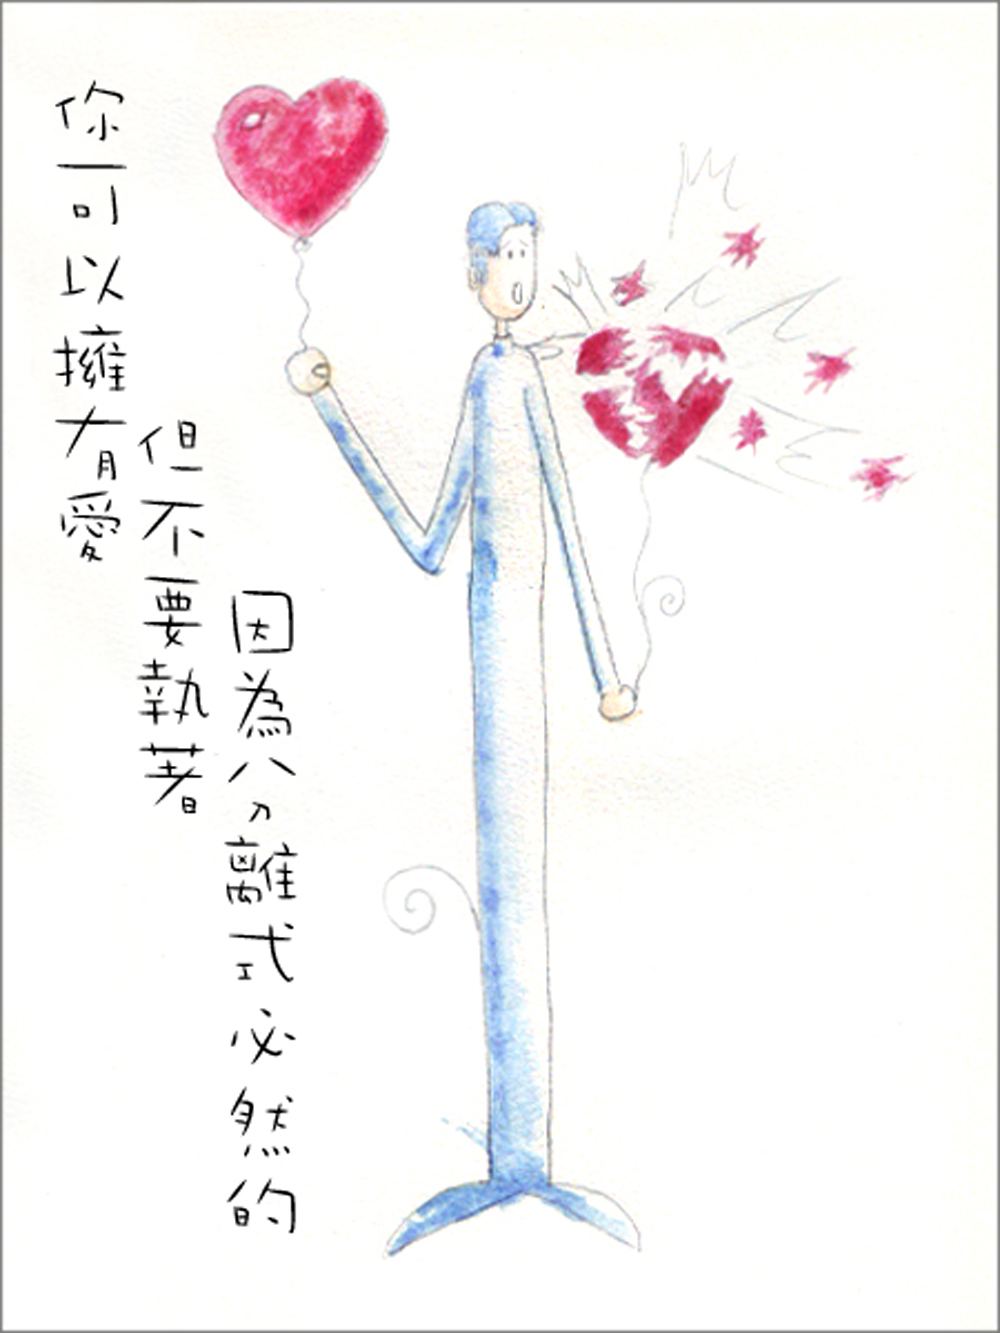 你可以擁有愛
但不要執著
因為分離式必然的